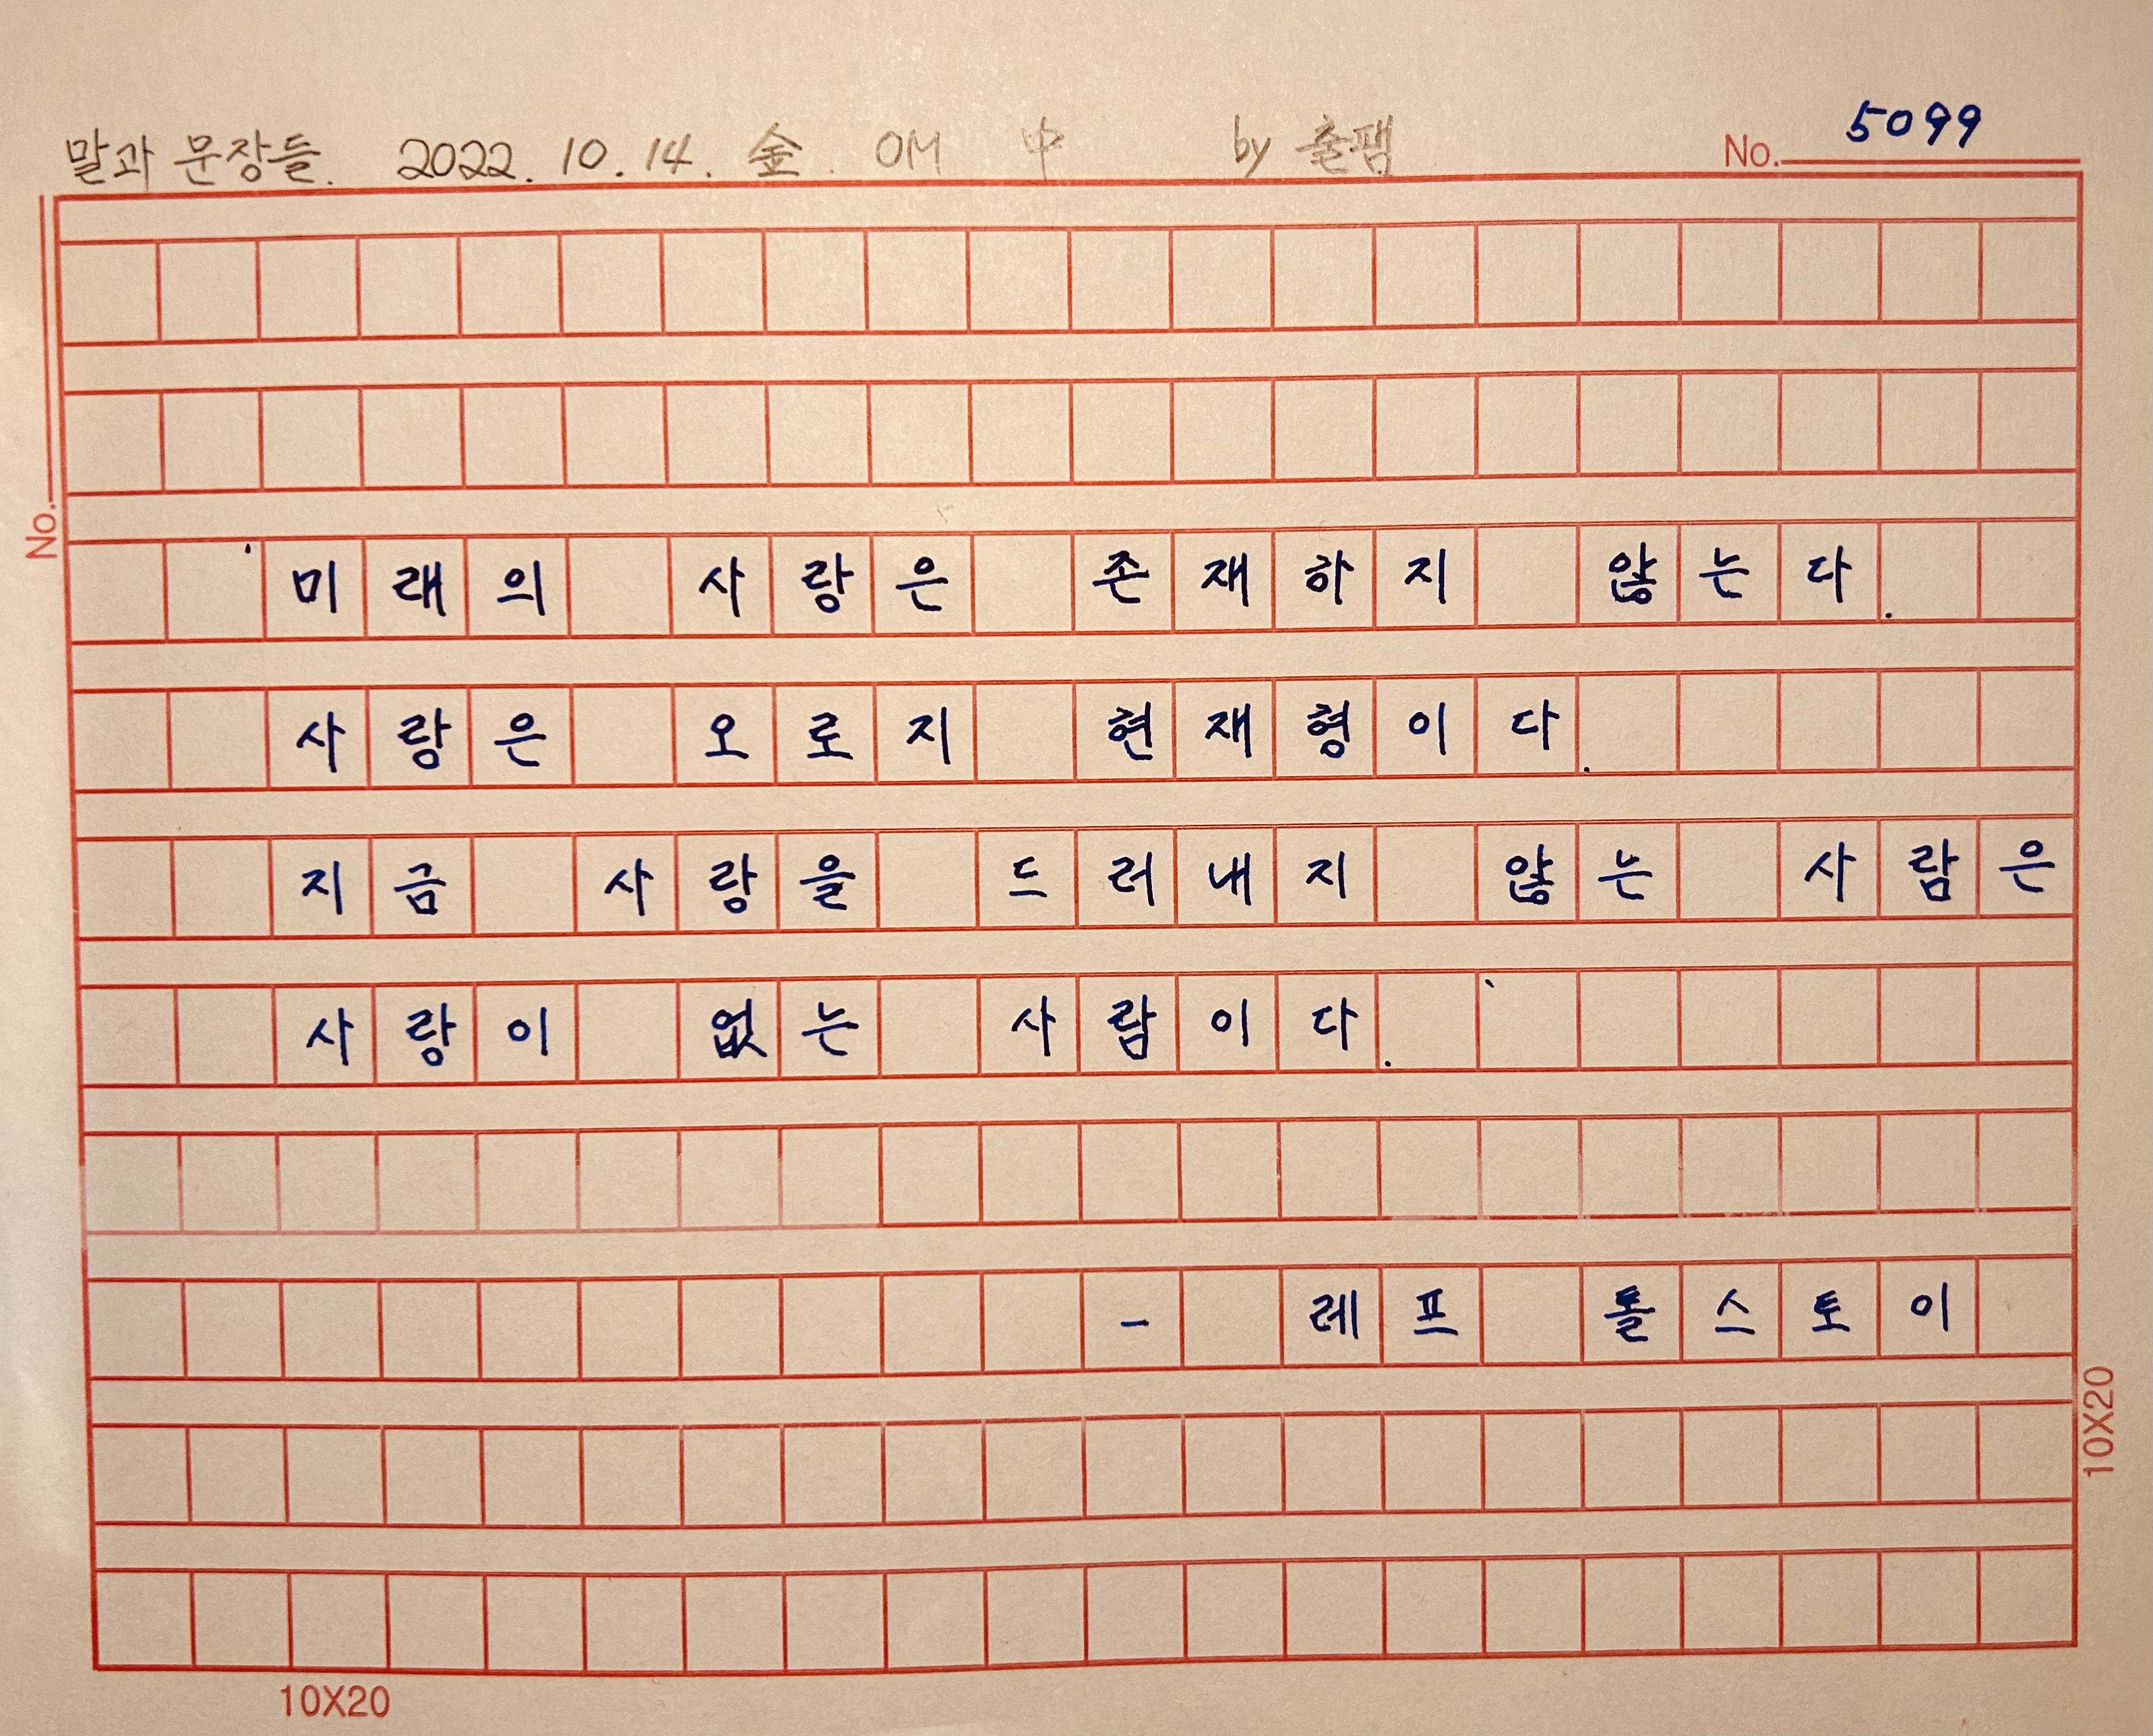 말과 문장들. 2022. 10. 14. 金. OM 中 by 출팸
No. 5099
No.
미래의 사랑은 존재하지 않는다.
사랑은 오로지 현재형이다.
지금 사랑을 드러내지 않는 사람은
사랑이 없는 사람이다.
- 레프 톨스토이
10X20
10X20